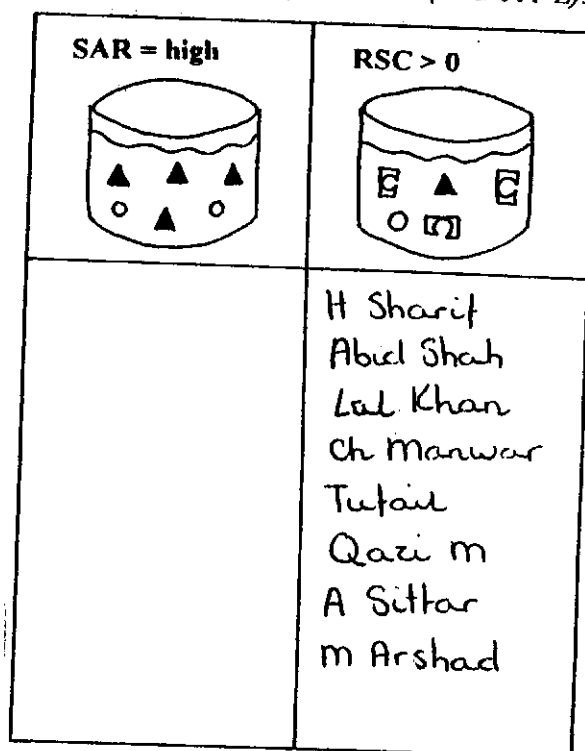 SAR = high
RSC > 0
H Sharif
Abid Shah
Lal Khan
Ch Manwar
Tufail
Qazi m
A Sittar
m Arshad